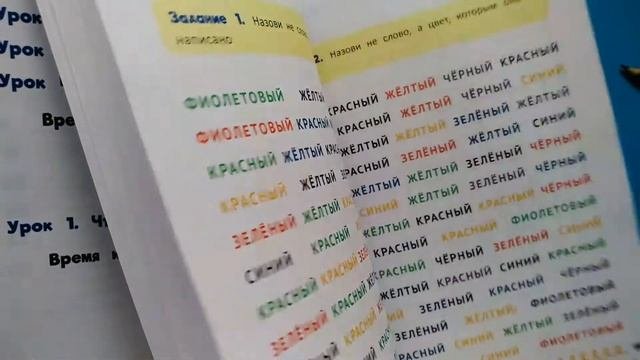 Урок
Урок
Урок
Вре
Урок 1. Ч
Время
Задание 1. Назови не
написано
ФИОЛЕТОВЫЙ ЖЁЛТЫЙ
ФИОЛЕТОВЫЙ КРАСНЫЙ
КРАСНЫЙ ЖЁЛТЫЙ
КРАСНЫЙ ЖЁЛТЫЙ
ЗЕЛЁНЫЙ ЖЁЛТЫЙ
СИНИЙ КРАСНЫЙ
КРАСНЫЙ КРАСНЫЙ
ЗЕЛЁНЫЙ КРАСНЫЙ
2. Назови не слово, а цвет, которым
КРАСНЫЙ ЖЁЛТЫЙ ЧЁРНЫЙ КРАСНЫЙ
КРАСНЫЙ ЖЁЛТЫЙ ЧЁРНЫЙ СИНИЙ
ЖЁЛТЫЙ ЖЁЛТЫЙ ЗЕЛЁНЫЙ ЖЁЛТЫЙ
КРАСНЫЙ ЗЕЛЁНЫЙ ЖЁЛТЫЙ СИНИЙ
ЖЁЛТЫЙ ЖЁЛТЫЙ ЗЕЛЁНЫЙ ЧЁРНЫЙ
СИНИЙ ЖЁЛТЫЙ ЗЕЛЁНЫЙ ЧЁРНЫЙ
ЖЁЛТЫЙ КРАСНЫЙ КРАСНЫЙ ЧЁРНЫЙ
КРАСНЫЙ КРАСНЫЙ ФИОЛЕТОВЫЙ
КРАСНЫЙ ЧЁРНЫЙ ЗЕЛЁНЫЙ СИНИЙ
ЖЁЛТЫЙ КРАСНЫЙ СИНИЙ КРАСНЫЙ
ЗЕЛЁНЫЙ КРАСНЫЙ ЧЁРНЫЙ
ЗЕЛЁНЫЙ ЖЁЛТЫЙ ФИОЛЕТОВЫЙ
КРАСНЫЙ СИНИЙ ЖЁЛТЫЙ ЗЕЛЁНЫЙ
СИНИЙ ФИОЛЕТОВЫЙ